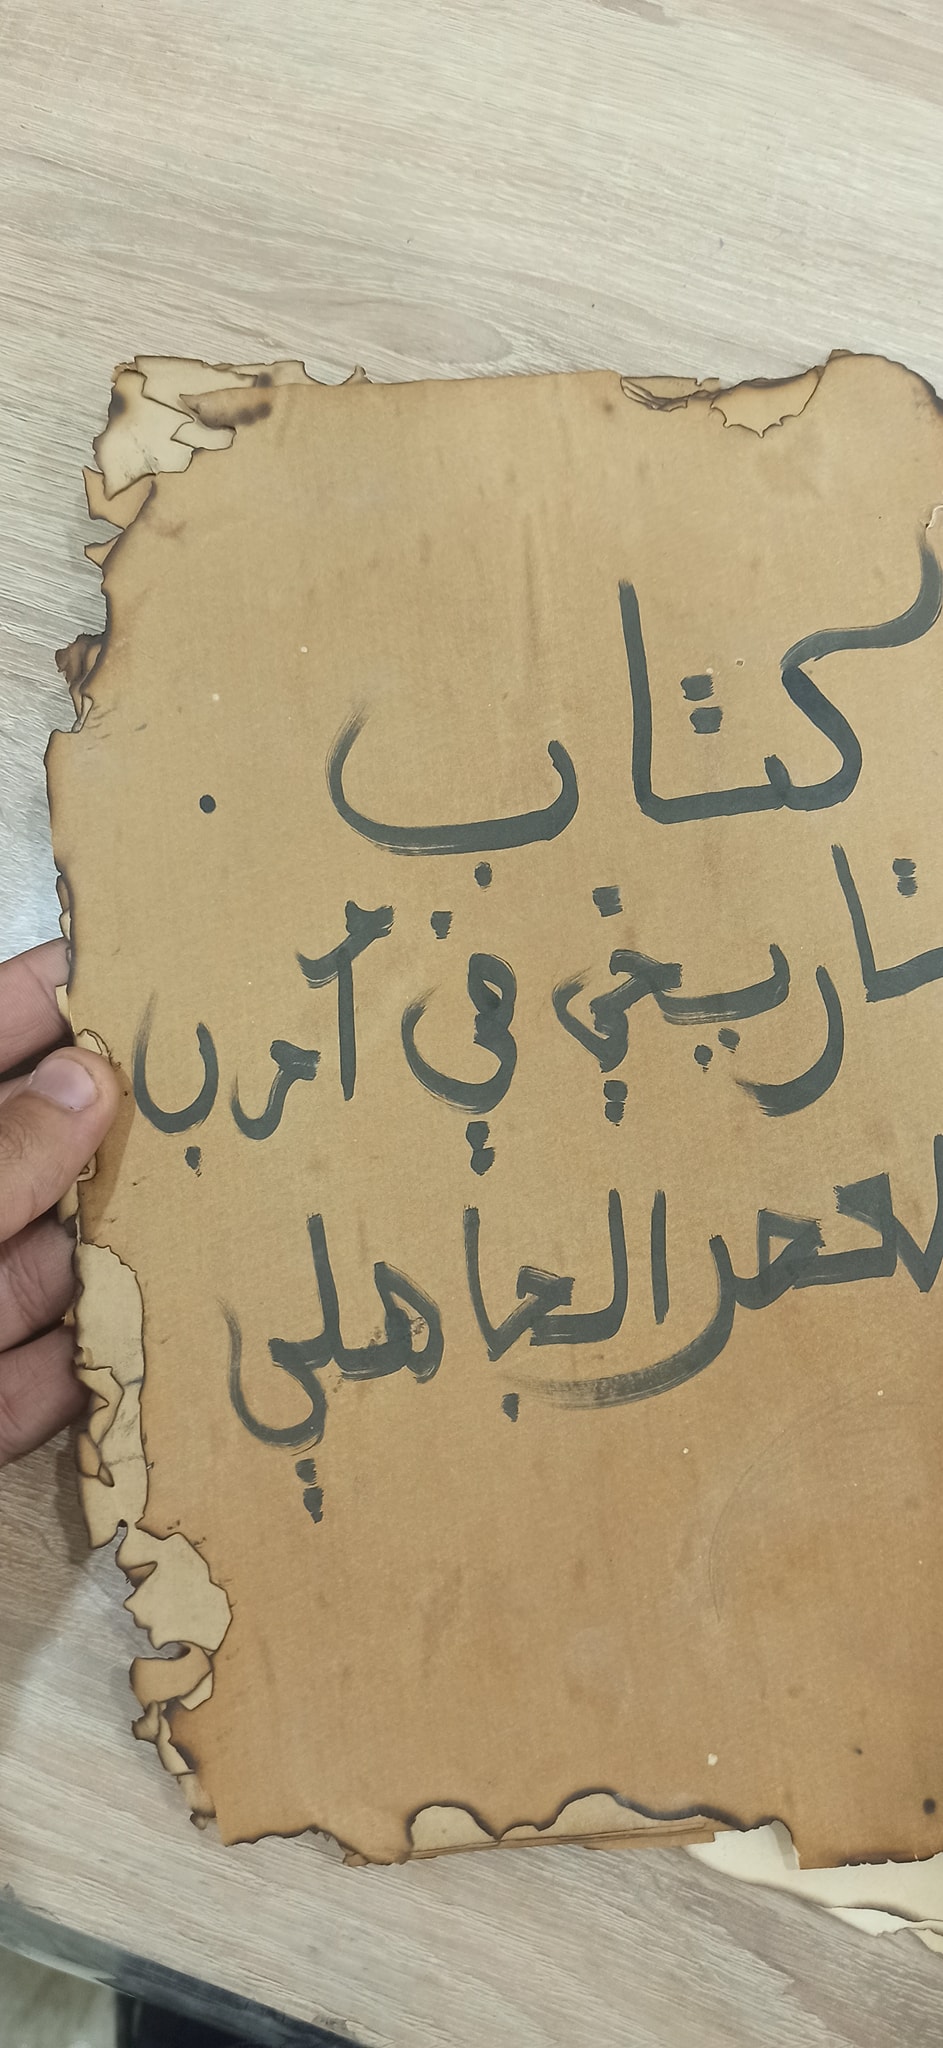 كتاب
تاريخي في أدب
العصر الجاهلي